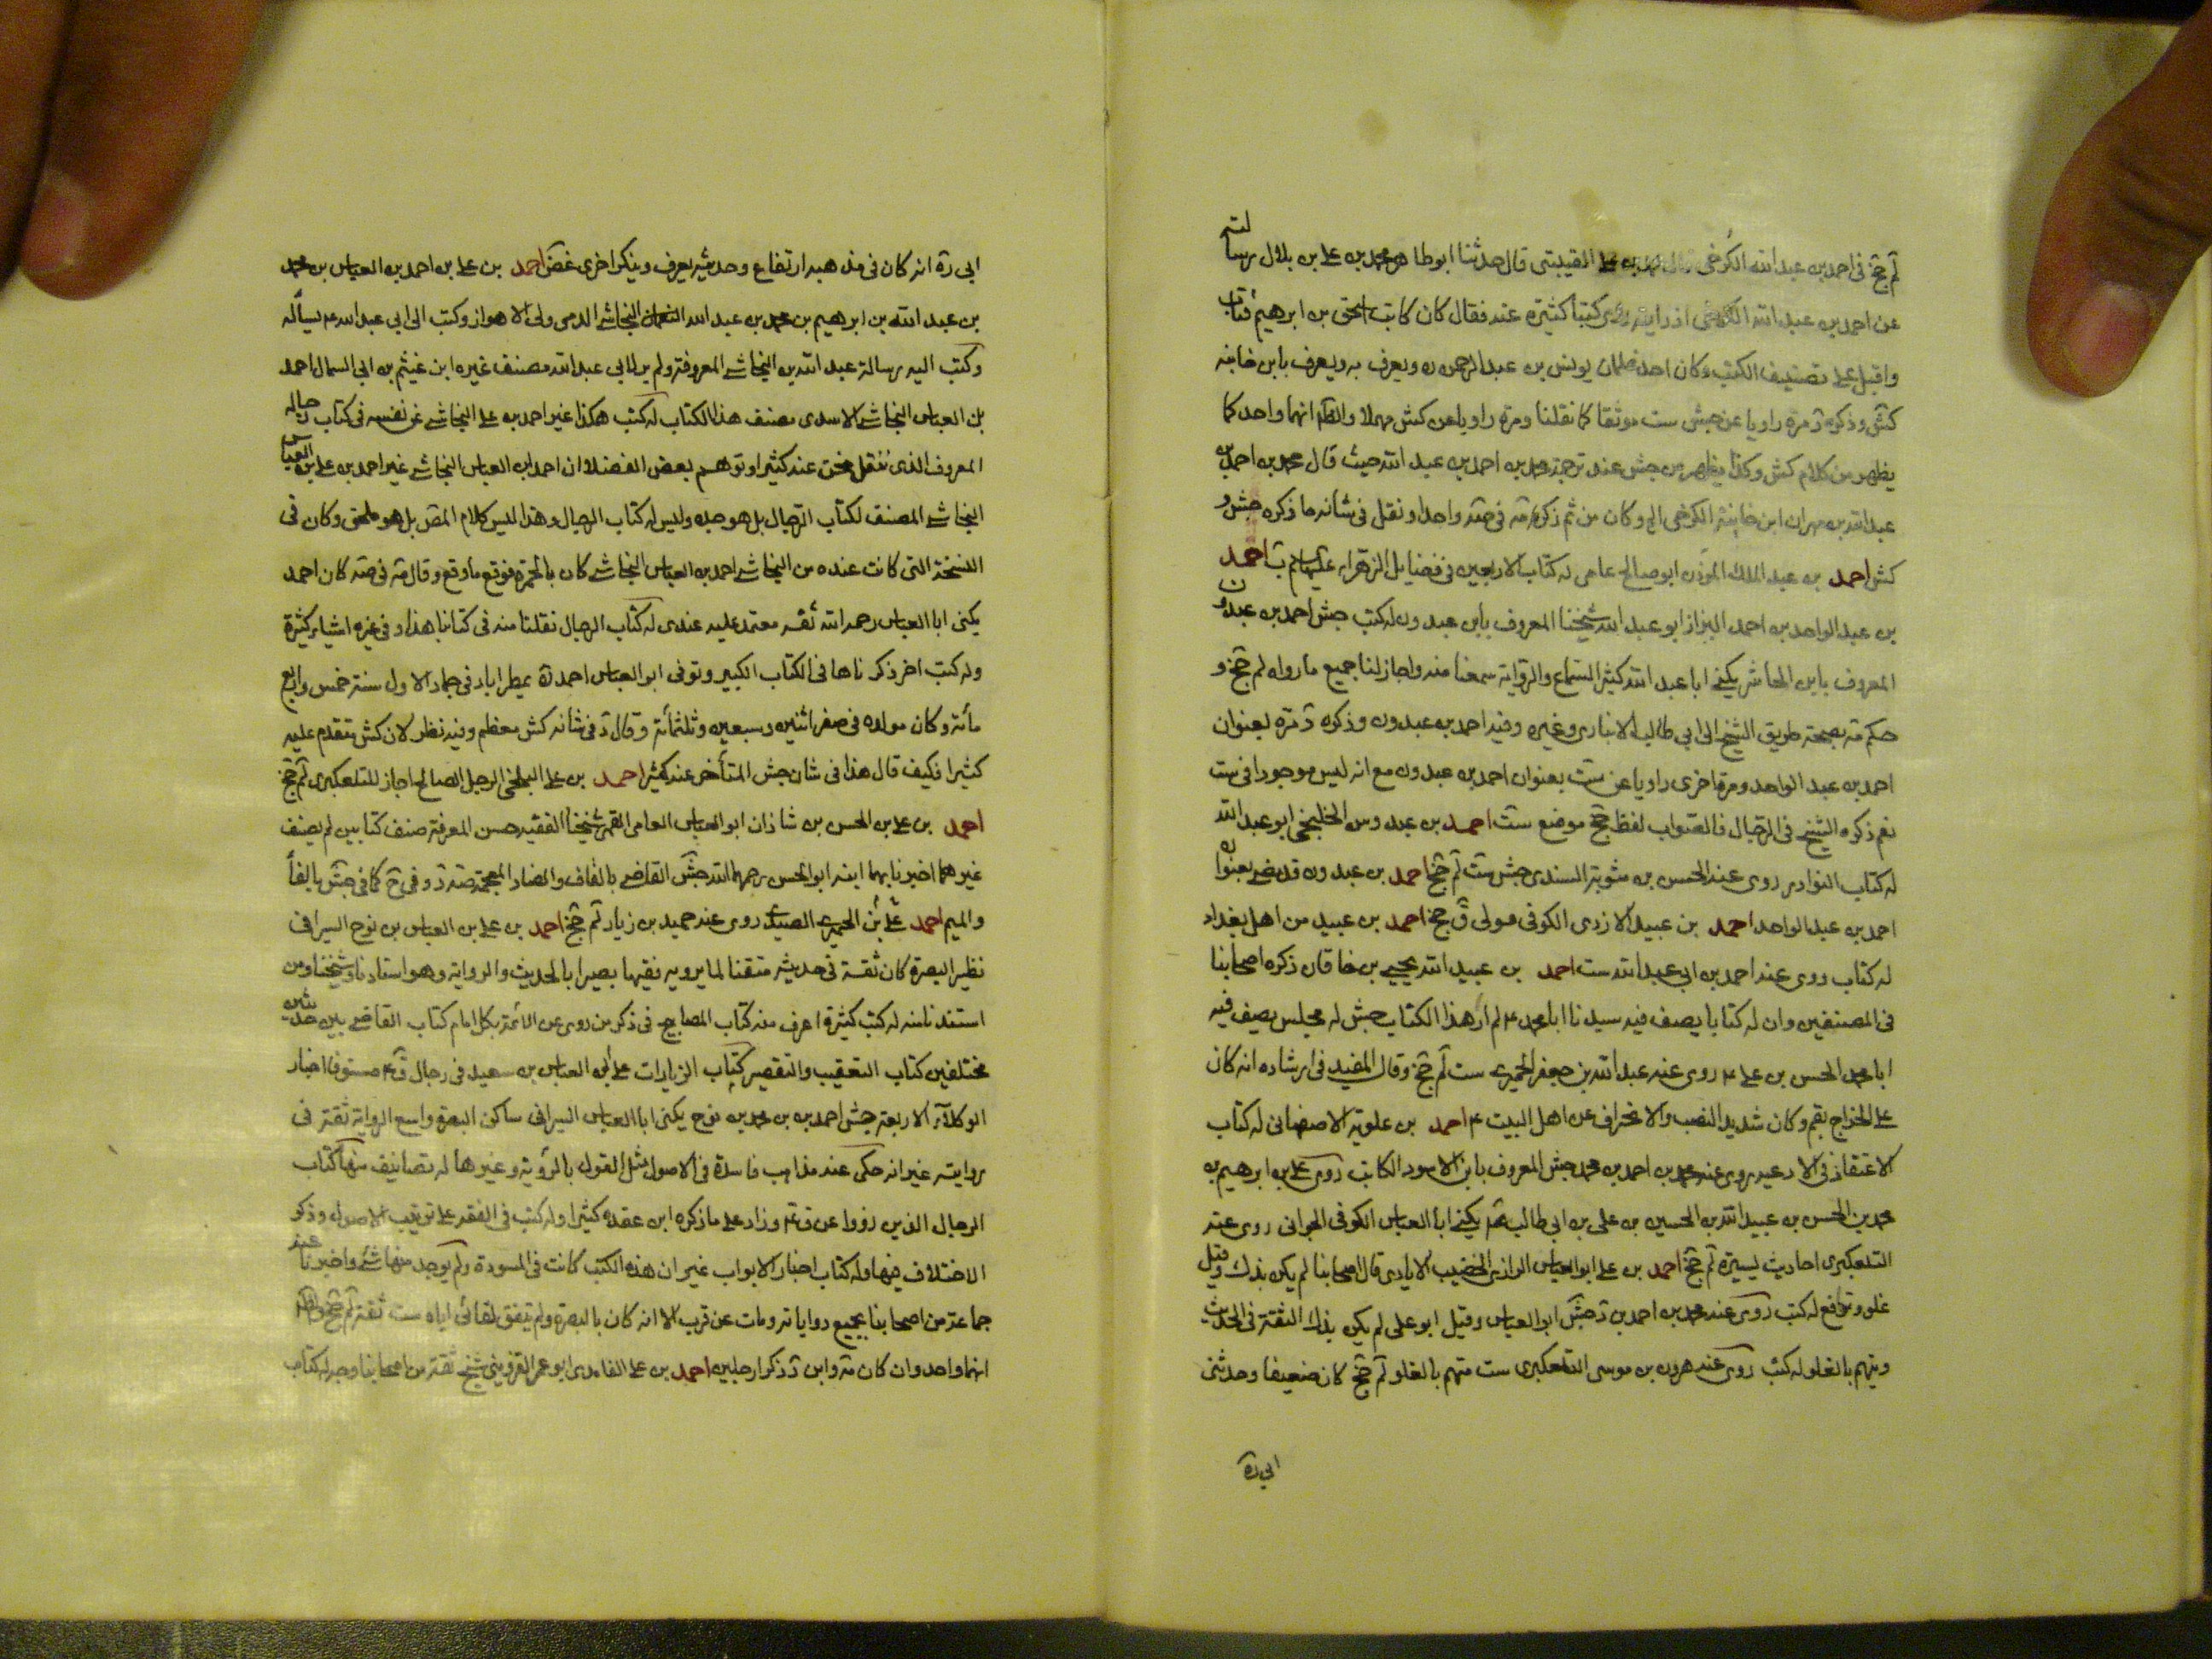 لم جخ في احمد بن عبد الله الكرخي قال محمد بن علي القتيبي قال حدثنا ابو طاهر محمد بن علي بن بلال رسالته
عن احمد بن عبد الله الكرخي اذ رايته يروى كتبا كثيرة عنه فقال كان كاتب اسحق بن ابرهيم فتاب
واقبل على تصنيف الكتب وكان احد غلمان يونس بن عبد الرحمن ره ويعرف به ويعرف بابن خانبه
كش وذكره د مرة راويا عن جش ست موثقا كما نقلنا ومرة راويا عن كش مهملا والظ انهما واحد كما
يظهر من كلام كش وكذا يظهر من جش عند ترجمة محمد بن احمد بن عبد الله حيث قال محمد بن احمد بن
عبد الله بن مهران ابن خانبة الكرخي الخ وكان من ثم ذكره مه في صه واحدا ونقل في شانه ما ذكره جش و
كش احمد بن عبد الملك المؤذن ابو صالح عامي له كتاب الاربعين في فضايل الزهراء عليها السلام ب احمد
بن عبد الواحد بن احمد البزاز ابو عبد الله شيخنا المعروف بابن عبدون له كتب جش احمد بن عبدون
المعروف بابن الحاشر يكنى ابا عبد الله كثير السماع والرواية سمعنا منه واجاز لنا جميع ما رواه لم جخ و
حكم مه بصحة طريق الشيخ الى ابي طالب الانباري وغيره وفيه احمد بن عبدون وذكره د مرة بعنوان
احمد بن عبد الواحد ومرة اخرى راويا عن ست بعنوان احمد بن عبدون مع انه ليس موجودا في ست
نعم ذكره الشيخ في الرجال فالصواب لفظ جخ موضع ست احمد بن عبدوس الخلنجي ابو عبد الله
له كتاب النوادر روى عنه الحسن بن متويه السندي جش ست لم جخ احمد بن عبدون قد مضى بعنوان
احمد بن عبد الواحد احمد بن عبيد الازدي الكوفي مولى ق جخ احمد بن عبيد من اهل بغداد
له كتاب روى عنه احمد بن ابي عبد الله ست احمد بن عبيد الله يحيى بن خاقان ذكره اصحابنا
في المصنفين وان له كتابا يصف فيه سيدنا ابا محمد ع لم ار هذا الكتاب جش له مجلس يصف فيه
ابا محمد الحسن بن علي ع روى عنه عبد الله بن جعفر الحميري ست لم جخ وقال المفيد في ارشاده انه كان
على الخراج بقم وكان شديد النصب والانحراف عن اهل البيت ع احمد بن علوية الاصفهاني له كتاب
الاعتقاد في الادعية روى عنه محمد بن احمد بن محمد جش المعروف بابن الاسود الكاتب روى عن ابرهيم بن
محمد بن الحسن بن عبيد الله بن الحسين بن علي بن ابي طالب ع يكنى ابا العباس الكوفي الجواني روى عنه
التلعكبري احاديث يسيرة لم جخ احمد بن علي ابو العباس الرازي الخضيب الايادي قال اصحابنا لم يكن بذاك وقيل
غلو وترافع له كتب روى عنه محمد بن احمد بن د جش ابو العباس وقيل ابو علي لم يكن بذاك الثقة في الحديث
ويتهم بالغلو له كتب روى عنه هرون بن موسى التلعكبري ست متهم بالغلو لم جخ كان ضعيفا وحدثني
ابي ره
ابي ره انه كان في مذهبه ارتفاع وحديثه يعرف وينكر اخرى غض احمد بن علي بن احمد بن العباس بن محمد
بن عبد الله بن ابرهيم بن محمد بن عبد الله النجاشي الذي ولي الاهواز وكتب الى ابي عبد الله ع يسأله
وكتب اليه رسالة عبد الله بن النجاشي المعروفة ولم ير لابي عبد الله مصنف غيره ابن غنيم بن ابي السمال احمد
بن العباس النجاشي الاسدي مصنف هذا الكتاب له كتب هكذا غير احمد بن علي النجاشي عن نفسه في كتاب رجاله
المعروف الذي ننقل نحن عنه كثيرا وتوهم بعض الفضلاء ان احمد بن العباس النجاشي غير احمد بن علي بن العباس
النجاشي المصنف لكتاب الرجال بل هو جده وليس له كتاب الرجال وهذا ليس كلام المص بل هو ملحق وكان في
النسخة التي كانت عنده من النجاشي احمد بن العباس النجاشي كان بالحمرة فوقع ما وقع وقال مه في صه كان احمد
يكنى ابا العباس رحمه الله ثقة معتمد عليه عندي له كتاب الرجال نقلنا منه في كتابنا هذا وفي غيره اشياء كثيرة
وله كتب اخر ذكرناها في الكتاب الكبير وتوفى ابو العباس احمد ره بمطيراباد في جماد الاول سنة خمس واربع
مائة وكان مولده في صفر اثنين وسبعين وثلثمائة وقال د في شانه كش معظم وفيه نظر لان كش متقدم عليه
كثيرا فكيف قال هذا في شان جش المتأخر عنه كثيرا احمد بن علي البلخي الرجل الصالح اجاز للتلعكبري لم جخ
احمد بن علي بن الحسن بن شاذان ابو العباس العامي القمي شيخنا الفقيه حسن المعرفة صنف كتابين لم يصنف
غيرهما اخبرنا بهما ابنه ابو الحسن رحمهما الله جش القاضي بالقاف والضاد المعجمة صه د وفي ح كما في جش بالفاء
والميم احمد علي بن الحميري الصيدي روى عنه حميد بن زياد لم جخ احمد بن علي بن العباس بن نوح السيرافي
نظير البصرة كان ثقة في حديثه متقنا لما يرويه فقيها بصيرا بالحديث والرواية وهو استادنا وشيخنا ومن
استفدنا منه له كتب كثيرة اعرف منه كتاب المصابيح في ذكر من روى عن الائمة بكل امام كتاب القاضي بين حديثين
مختلفين كتاب التعقيب والتقصير كتاب الزيادات على ابي العباس بن سعيد في رجال ق ع مستوفا اخبار
الوكلاء الاربعة جش احمد بن محمد بن نوح يكنى ابا العباس السيرافي ساكن البصرة واسع الرواية ثقة في
روايته غير انه حكى عنه مذاهب فاسدة في الاصول مثل القول بالرؤية وغيرها له تصانيف منها كتاب
الرجال الذين رووا عن ق ع وزاد على ما ذكره ابن عقدة كثيرا وله كتب في الفقه على ترتيب الاصول وذكر
الاختلاف فيها وله كتاب اخبار الابواب غير ان هذه الكتب كانت في المسودة ولم يوجد منها شئ واخبرنا عنه
جماعة من اصحابنا بجميع رواياته ومات عن قرب الا انه كان بالبصرة ولم يتفق لقائي اياه ست ثقة لم جخ والظ
انهما واحد وان كان مه وابن د ذكرا رجلين احمد بن علي الفامدي ابو عمر القزويني شيخ ثقة من اصحابنا وجه له كتاب